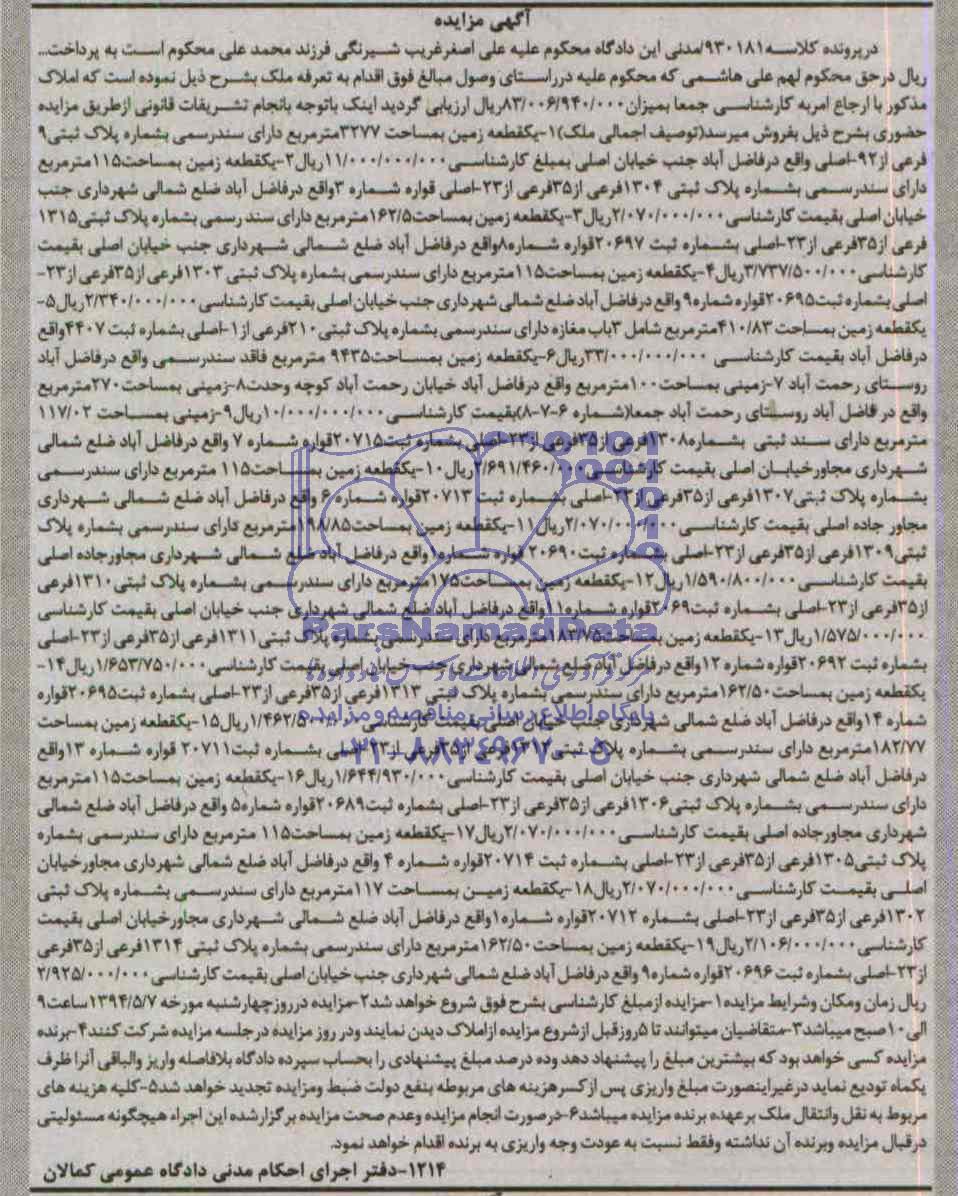 آگهی مزایده
درپرونده کلاسه۹۳۰۱۸۱/مدنی این دادگاه محکوم علیه علی اصغرغریب شیرنگی فرزند محمد علی محکوم است به پرداخت...
ریال درحق محکوم لهم علی هاشمی که محکوم علیه درراستای وصول مبالغ فوق اقدام به تعرفه ملک بشرح ذیل نموده است که املاک
مذکور با ارجاع امربه کارشناسی جمعا بمیزان۸۳/۰۰۶/۹۴۰/۰۰۰ریال ارزیابی گردید اینک باتوجه بانجام تشریفات قانونی ازطریق مزایده
حضوری بشرح ذیل بفروش میرسد(توصیف اجمالی ملک)۱-یکقطعه زمین بمساحت ۳۲۷۷مترمربع دارای سندرسمی بشماره پلاک ثبتی۹
فرعی از۹۲-اصلی واقع درفاضل آباد جنب خیابان اصلی بمبلغ کارشناسی۱۱/۰۰۰/۰۰۰/۰۰۰ریال۲-یکقطعه زمین بمساحت۱۱۵مترمربع
دارای سندرسمی بشماره پلاک ثبتی ۱۳۰۴فرعی از۳۵فرعی از۲۳-اصلی قواره شماره ۳واقع درفاضل آباد ضلع شمالی شهرداری جنب
خیابان اصلی بقیمت کارشناسی۲/۰۷۰/۰۰۰/۰۰۰ریال۳-یکقطعه زمین بمساحت۱۶۲/۵مترمربع دارای سند رسمی بشماره پلاک ثبتی۱۳۱۵
فرعی از۳۵فرعی از۲۳-اصلی بشماره ثبت ۲۰۶۹۷قواره شماره۸واقع درفاضل آباد ضلع شمالی شهرداری جنب خیابان اصلی بقیمت
کارشناسی۳/۷۳۷/۵۰۰/۰۰۰ریال۴-یکقطعه زمین بمساحت۱۱۵مترمربع دارای سندرسمی بشماره پلاک ثبتی ۱۳۰۳فرعی از۳۵فرعی از۲۳-
اصلی بشماره ثبت۲۰۶۹۵قواره شماره۹ واقع درفاضل آباد ضلع شمالی شهرداری جنب خیابان اصلی بقیمت کارشناسی۲/۳۴۰/۰۰۰/۰۰۰ریال۵-
یکقطعه زمین بمساحت ۴۱۰/۸۳مترمربع شامل ۳باب مغازه دارای سندرسمی بشماره پلاک ثبتی۲۱۰فرعی از۱-اصلی بشماره ثبت ۴۴۰۷واقع
درفاضل آباد بقیمت کارشناسی ۳۳/۰۰۰/۰۰۰/۰۰۰ریال۶-یکقطعه زمین بمساحت۹۴۳۵ مترمربع فاقد سندرسمی واقع درفاضل آباد
روستای رحمت آباد ۷-زمینی بمساحت۱۰۰مترمربع واقع درفاضل آباد خیابان رحمت آباد کوچه وحدت۸-زمینی بمساحت۲۷۰مترمربع
واقع در فاضل آباد روستای رحمت آباد جمعا(شماره ۶-۷-۸)بقیمت کارشناسی۱۰/۰۰۰/۰۰۰/۰۰۰ریال۹-زمینی بمساحت ۱۱۷/۰۲
مترمربع دارای سند ثبتی بشماره۱۳۰۸فرعی از۳۵فرعی از۲۳-اصلی بشماره ثبت۲۰۷۱۵قواره شماره ۷ واقع درفاضل آباد ضلع شمالی
شهرداری مجاورخیابان اصلی بقیمت کارشناسی۲/۶۹۱/۴۶۰/۰۰۰ریال۱۰-یکقطعه زمین بمساحت۱۱۵ مترمربع دارای سندرسمی
بشماره پلاک ثبتی۱۳۰۷فرعی از۳۵فرعی از۲۳-اصلی بشماره ثبت ۲۰۷۱۳قواره شماره ۶ واقع درفاضل آباد ضلع شمالی شهرداری
مجاور جاده اصلی بقیمت کارشناسی۲/۰۷۰/۰۰۰/۰۰۰ریال۱۱-یکقطعه زمین بمساحت۱۹۸/۸۵مترمربع دارای سندرسمی بشماره پلاک
ثبتی۱۳۰۹فرعی از۳۵فرعی از۲۳-اصلی بشماره ثبت۲۰۶۹۰ قواره شماره۱ واقع درفاضل آباد ضلع شمالی شهرداری مجاورجاده اصلی
بقیمت کارشناسی ۱/۵۹۰/۸۰۰/۰۰۰ریال۱۲-یکقطعه زمین بمساحت۱۷۵مترمربع دارای سندرسمی بشماره پلاک ثبتی۱۳۱۰فرعی
از۳۵فرعی از۲۳-اصلی بشماره ثبت۲۰۶۹قواره شماره۱۱واقع درفاضل آباد ضلع شمالی شهرداری جنب خیابان اصلی بقیمت کارشناسی
۱/۵۷۵/۰۰۰/۰۰۰ریال۱۳-یکقطعه زمین بمساحت۱۸۳/۷۵مترمربع دارای سندرسمی بشماره پلاک ثبتی۱۳۱۱فرعی از۳۵فرعی از۲۳-اصلی
بشماره ثبت ۲۰۶۹۲قواره شماره ۱۲واقع درفاضل آباد ضلع شمالی شهرداری جنب خیابان اصلی بقیمت کارشناسی۱/۶۵۳/۷۵۰/۰۰۰ریال۱۴-
یکقطعه زمین بمساحت۱۶۲/۵۰مترمربع دارای سندرسمی بشماره پلاک ثبتی ۱۳۱۳فرعی از۳۵فرعی از۲۳-اصلی بشماره ثبت۲۰۶۹۵قواره
شماره ۱۴واقع درفاضل آباد ضلع شمالی شهرداری جنب خیابان اصلی بقیمت کارشناسی ۱/۴۶۲/۵۰۰/۰۰۰ریال۱۵-یکقطعه زمین بمساحت
۱۸۲/۷۷مترمربع دارای سندرسمی بشماره پلاک ثبتی۱۳۱۲فرعی از۳۵فرعی از۲۳-اصلی بشماره ثبت۲۰۷۱۱ قواره شماره ۱۳واقع
درفاضل آباد ضلع شمالی شهرداری جنب خیابان اصلی بقیمت کارشناسی۱/۶۴۴/۹۳۰/۰۰۰ریال۱۶-یکقطعه زمین بمساحت۱۱۵مترمربع
دارای سندرسمی بشماره پلاک ثبتی۱۳۰۶فرعی از۳۵فرعی از۲۳-اصلی بشماره ثبت۲۰۶۸۹قواره شماره۵ واقع درفاضل آباد ضلع شمالی
شهرداری مجاورجاده اصلی بقیمت کارشناسی۲/۰۷۰/۰۰۰/۰۰۰ریال۱۷-یکقطعه زمین بمساحت۱۱۵ مترمربع دارای سندرسمی بشماره
پلاک ثبتی۱۳۰۵فرعی از۳۵فرعی از۲۳-اصلی بشماره ثبت ۲۰۷۱۴قواره شماره ۴ واقع درفاضل آباد ضلع شمالی شهرداری مجاورخیابان
اصلی بقیمت کارشناسی۲/۰۷۰/۰۰۰/۰۰۰ریال۱۸-یکقطعه زمین بمساحت ۱۱۷مترمربع دارای سندرسمی بشماره پلاک ثبتی
۱۳۰۲فرعی از۳۵فرعی از۲۳-اصلی بشماره ۲۰۷۱۲قواره شماره۱واقع درفاضل آباد ضلع شمالی شهرداری مجاورخیابان اصلی بقیمت
کارشناسی۲/۱۰۶/۰۰۰/۰۰۰ریال۱۹-یکقطعه زمین بمساحت۱۶۲/۵۰مترمربع دارای سندرسمی بشماره پلاک ثبتی ۱۳۱۴فرعی از۳۵فرعی
از۲۳-اصلی بشماره ثبت ۲۰۶۹۶قواره شماره۹ واقع درفاضل آباد ضلع شمالی شهرداری جنب خیابان اصلی بقیمت کارشناسی۲/۹۲۵/۰۰۰/۰۰۰
ریال زمان ومکان وشرایط مزایده۱-مزایده ازمبلغ کارشناسی بشرح فوق شروع خواهد شد۲-مزایده درروزچهارشنبه مورخه ۱۳۹۴/۵/۷ساعت۹
الی۱۰صبح میباشد۳-متقاضیان میتوانند تا ۵روزقبل ازشروع مزایده ازاملاک دیدن نمایند ودر روز مزایده درجلسه مزایده شرکت کنند۴-برنده
مزایده کسی خواهد بود که بیشترین مبلغ را پیشنهاد دهد وده درصد مبلغ پیشنهادی را بحساب سپرده دادگاه بلافاصله واریز والباقی آنرا ظرف
یکماه تودیع نماید درغیراینصورت مبلغ واریزی پس ازکسرهزینه های مربوطه بنفع دولت ضبط ومزایده تجدید خواهد شد۵-کلیه هزینه های
مربوط به نقل وانتقال ملک برعهده برنده مزایده میباشد۶-درصورت انجام مزایده وعدم صحت مزایده برگزارشده این اجراء هیچگونه مسئولیتی
درقبال مزایده وبرنده آن نداشته وفقط نسبت به عودت وجه واریزی به برنده اقدام خواهد نمود.
۱۲۱۴-دفتر اجرای احکام مدنی دادگاه عمومی کمالان
ParsNamadData
پایگاه اطلاع رسانی مناقصه و مزایده
۰۲۱-۸۸۳۴۹۶۷۰-۵